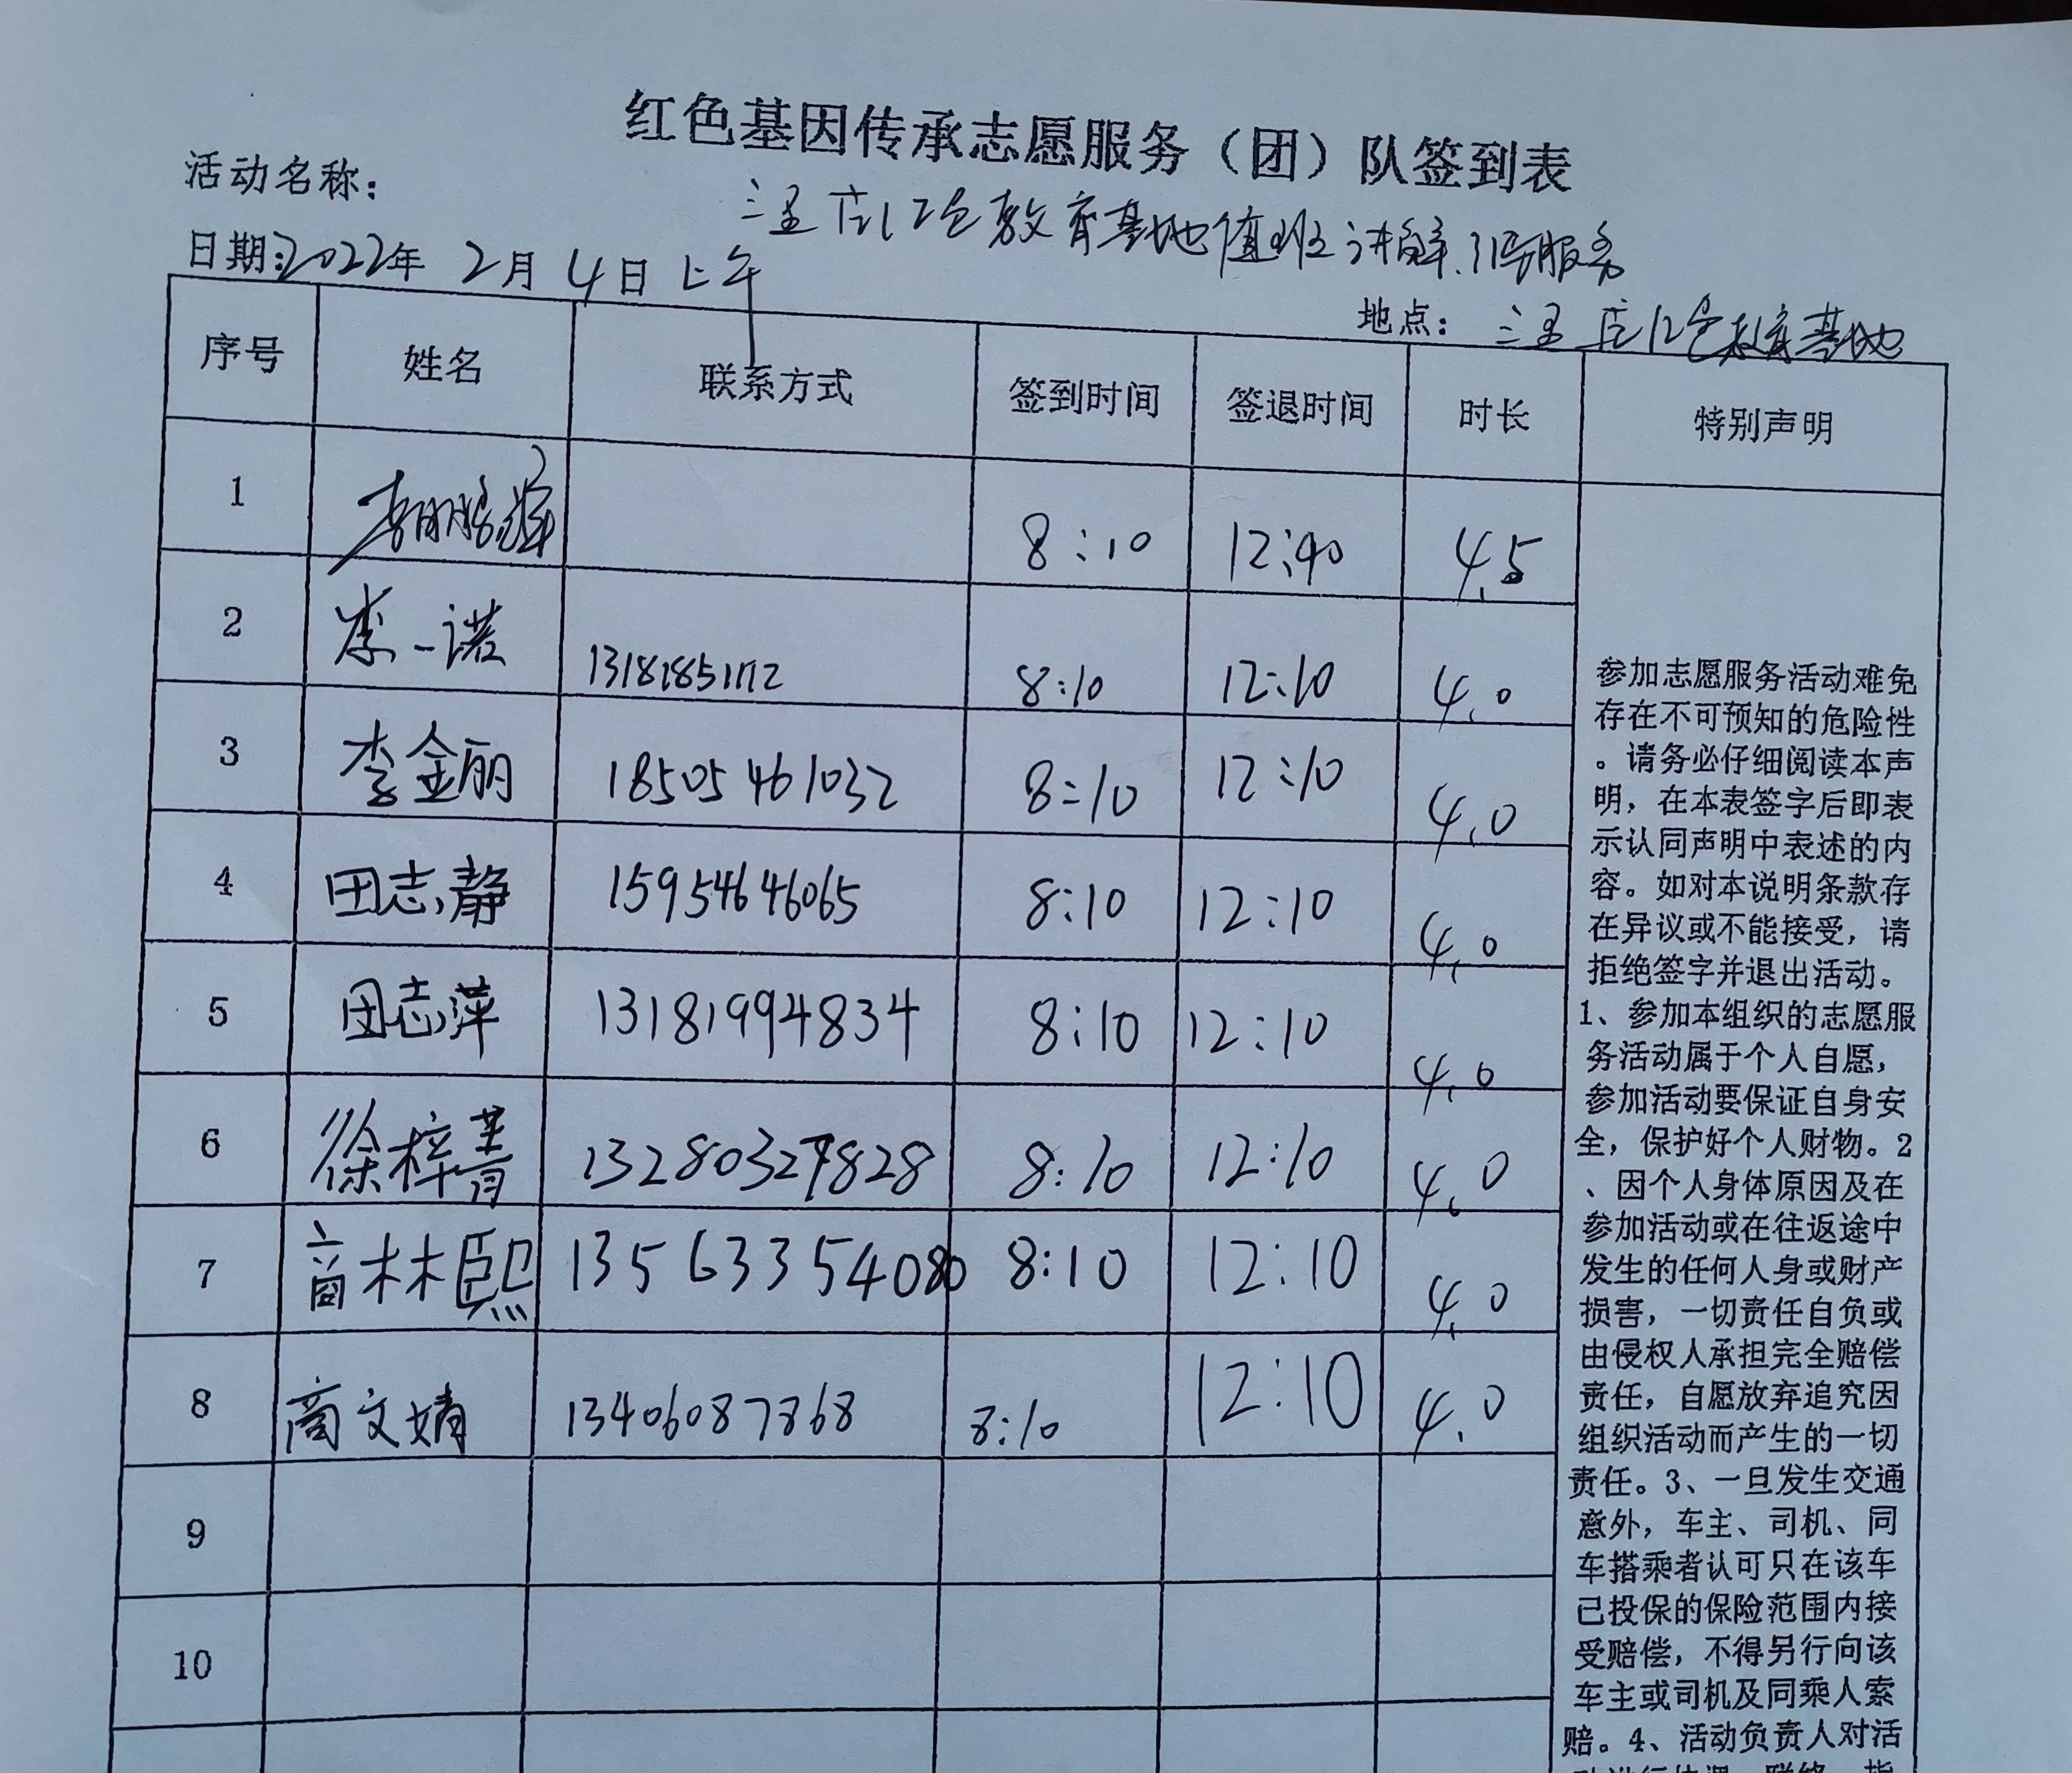 红色基因传承志愿服务（团）队签到表
活动名称：
三里庄红色教育基地值班讲解、引导服务
日期：2022年 2月 4日 上午
地点： 三里庄红色教育基地
序号 姓名 联系方式 签到时间 签退时间 时长 特别声明
1 8:10 12:40 4.5
2 李一诺 8:10 12:10 4.0
3 李金丽 18505461032 8:10 12:10 4.0
4 田志静 15954646065 8:10 12:10 4.0
5 田志萍 13181994834 8:10 12:10 4.0
6 徐梓菁 8:10 12:10 4.0
7 林熙 8:10 12:10 4.0
8 商文婧 13406087868 8:10 12:10 4.0
9
10
参加志愿服务活动难免
存在不可预知的危险性
。请务必仔细阅读本声
明，在本表签字后即表
示认同声明中表述的内
容。如对本说明条款存
在异议或不能接受，请
拒绝签字并退出活动。
1、参加本组织的志愿服
务活动属于个人自愿，
参加活动要保证自身安
全，保护好个人财物。2
、因个人身体原因及在
参加活动或在往返途中
发生的任何人身或财产
损害，一切责任自负或
由侵权人承担完全赔偿
责任，自愿放弃追究因
组织活动而产生的一切
责任。3、一旦发生交通
意外，车主、司机、同
车搭乘者认可只在该车
已投保的保险范围内接
受赔偿，不得另行向该
车主或司机及同乘人索
赔。4、活动负责人对活